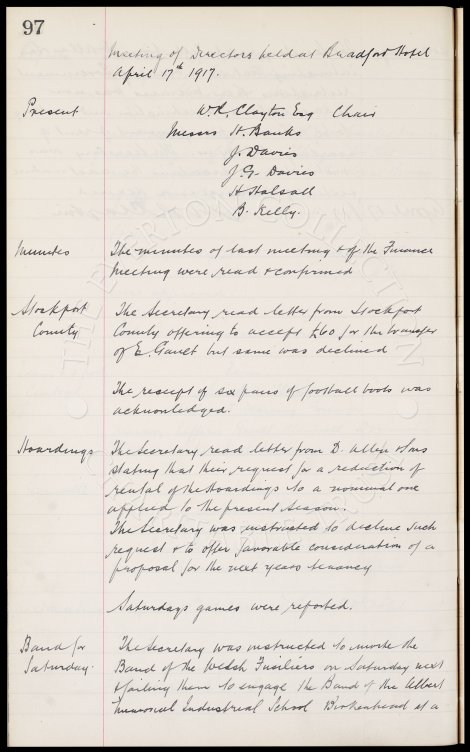 97
Meeting of Directors held at Bradford Hotel
April 17th 1917.
Present W.R. Clayton Esq Chair
Messrs H. Banks
J. Davies
J.G. Davies
H Halsall
B. Kelly.
Minutes The minutes of last meeting & of the Finance
Meeting were read & confirmed
Stockport The Secretary read letter from Stockport
County County offering to accept £60 for the transfer
of E. Gault but same was declined
The receipt of six pairs of football boots was
acknowledged.
Hoardings The Secretary read letter from D. Allen & Sons
stating that their request for a reduction of
rental of the Hoardings to a nominal one
applied to the present season.
The Secretary was instructed to decline such
request & to offer favorable consideration of a
proposal for the next years tenancy
Saturdays games were reported.
Band for The Secretary was instructed to invite the
Saturday. Band of the Welsh Fusiliers on Saturday next
& failing them to engage the Band of the Albert
Memorial Industrial School Birkenhead at a
THE EVERTON COLLECTION